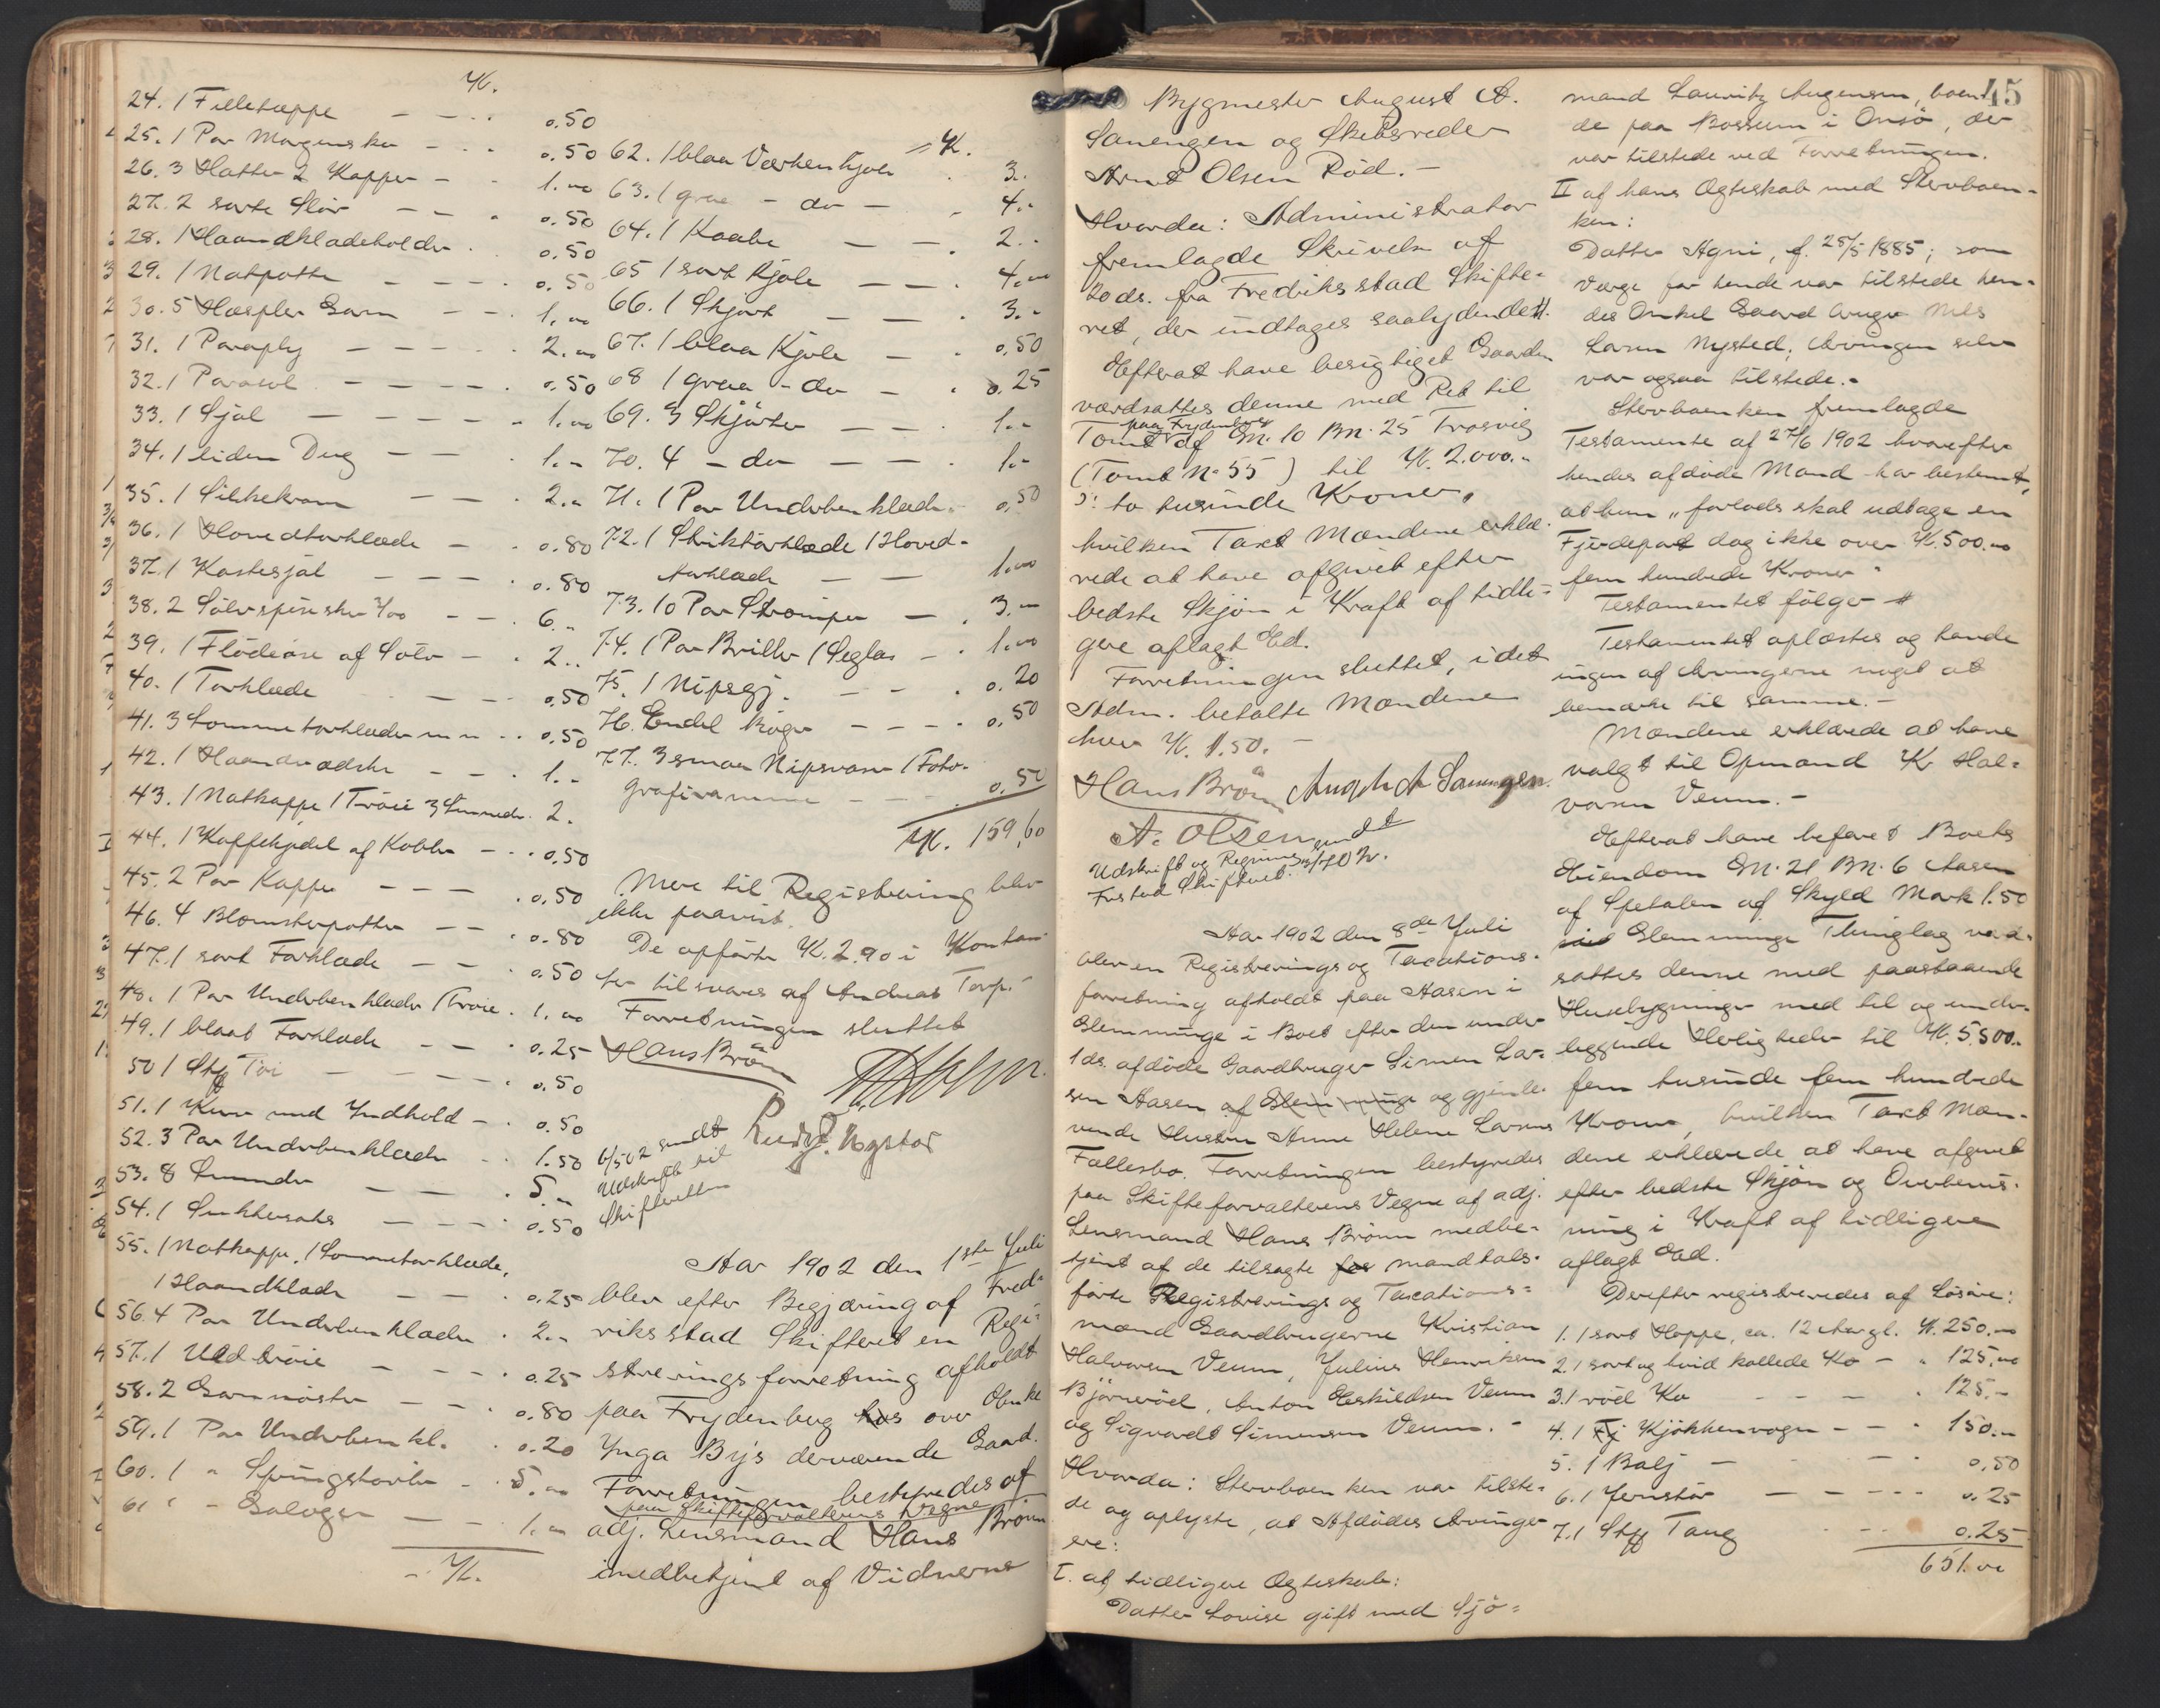 K.
24. 1 Filletæppe — — 0.50
25. 1 Par Morgensko — 0.50
26. 3 Hatter 2 Kapper — 1.00
27. 2 sorte Slör — — 0.50
28. 1 Haandklædeholder 0.50
29. 1 Natpotte — — — 0.50
30. 5 Hespler Garn — — 1.00
31. 1 Paraply — — — 2.00
32. 1 Parasol — — — 0.50
33. 1 Sjal — — — — 1.00
34. 1 liden Dug — — 1.-
35. 1 Silkekram — — 2.-
36. 1 Hovedtørklæde — 0.80
37. 1 Kastesjal — — — 0.80
38. 2 Sölvspiseskeer — — 6.-
39. 1 Flödeöse af Sölv — 2..
40. 1 Törklæde — — 0.50
41. 3 Lommetörklæder m.m. 0.50
42. 1 Haandvædske — — 1.-
43. 1 Natkappe 1 Tröie 3 Linneder. 2.
44. 1 Kaffekjedel af Kobber — 0.50
45. 2 Par Kapper — — — 0.50
46. 4 Blomsterpotter — — 0.80
47. 1 sort Forklæde — — 0.50
48. 1 Par Underbenklæder 1 Tröie. 1.00
49. 1 blaat Forklæde — — 0.25
50 1 Stk Töi — — — 0.50
51. 1 Kurv med Indhold — 0.50
52. 3 Par Underbenklæder 1.50
53. 8 Linneder — — 5.-
54. 1 Sukkersaks — — — 0.50
55. 1 Natkappe, 1 Lommetörklæde,
1 Haandklæde — — 0.25
56. 4 Par Underbenklæder 2.-
57. 1 Uldtröie — — — 0.25
58. 2 Garnnöster — — 0.80
59. 1 Par Underbenkl. 0.20
60. 1 " Springstövler 5.00
61 " - Galoger — — 1.00
K.
K.
62. 1 blaa Værkenkjole 3..
63. 1 graa - do — 4.-
64. 1 Kaabe — — 2..
65 1 sort Kjole — — 4.00
66. 1 Skjort — — 3.-
67. 1 blaa Kjole — 0.50
68 1 graa - do — 0.25
69. 3 Skjörter — — 1.-
70. 4 - do — — — 1.-
71. 1 Par Underbenklæder 0.50
72. 1 Striktörklæde 1 Hoved-
törklæde — — 1.00
73. 10 Par Strömper — 3.-
74. 1 Par Briller 1 Seglas — 1.00
75. 1 Nipsgj. — — 0.20
76. Endel Böger — — — 0.50
77. 3 smaa Nipsvaser 1 Foto-
grafiramme — — 0.50
K. 159.60
Mere til Registrering blev
ikke paavist.
De opförte K. 2.90 i Kontan-
ter tilsvares af Andreas Torp.-
Forretningen sluttet
Hans Brönn
Rudf. Nystad
6/5 02 sendt
Udskrift til
Skifteretten
Aar 1902 den 1ste Juli
blev efter Begjæring af Fred-
riksstad Skifteret en Regi-
streringsforretning afholdt
paa Frydenberg hos over Enke
Inga Bys derværende Gaard.
Forretningen bestyredes af
paa Skifteforvalterens Vegne
adj. Lensmand Hans Brönn
medbetjent af Vidnerne
Bygmester August A.
Sanengen og Skibsreder
Arnt Olsen Röd. —
Hvorda: Administrator
fremlagde Skrivelse af
20 ds. fra Fredriksstad Skifte-
ret, der indtages saalydende #.
Efterat have besigtiget Gaarden
værdsattes denme med Ret til
paa Frydenberg
Tomt af Gn. 10 Bn. 25 Trosvig
(Tomt No 55) til K. 2.000.-
ɔ: to tusinde Kroner,
hvilken Taxt Mændene erklæ-
rede at have afgivet efter
bedste Skjön i Kraft af tidli-
gere aflagt Ed.
Forretningen sluttet, idet
Adm. betalte Mændene
hver K. 1.50. —
Hans Brönn August A Sanengen.
A. Olsen
Udskrift og Regning sendt
Fr.stad Skifteret. 3/7 02.
Aar 1902 den 8de Juli
blev en Registrerings og Taxations-
forretning afholdt paa Aasen i
Glemminge i Boet efter den under
1 ds. afdöde Gaardbruger Simen Lar-
sen Aasen af Glemminge og gjenle-
vende Hustru Anne Helene Larsens
Fællesbo. Forretningen bestyredes
paa Skifteforvalterens Vegne af adj.
Lensmand Hans Brönn medbe-
tjent af de tilsagte for mandtals-
förte Registrerings og Taxations-
mænd Gaardbrugerne Kristian
Halvorsen Veum, Julius Henriksen
Björneröd, Anton Eskildsen Veum
og Sigvardt Simensen Veum. -
Hvorda: Stervboenken var tilste-
de og oplyste, at Afdödes Arvinger
ere:
I. af tidligere Ægteskab:
Datter Lovise gift med Sjö-
45
mand Lauritz Augensen, boen-
de paa Rossum i Onsö, der
var tilstede ved Forretningen.
II af hans Ægteskab med Stervboen-
ken:
Datter Agni, f. 25/5 1885; som
Værge for hende var tilstede hen-
des Onkel Gaardbruger Nils
Larsen Nysted; Arvingen selv
var ogsaa tilstede.-
Stervboenken fremlagde
Testamente af 27/6 1902 hvorefter
hendes afdöde Mand har bestemt,
at hun "forlods skal udtage en
Fjerdepart dog ikke over K. 500.00
fem hundrede Kroner"
Testamentet fölger #
Testamentet oplæstes og havde
ingen af Arvingerne noget at
bemærke til samme. —
Mændene erklærede at have
valgt til Opmand Kr Hal-
vorsen Veum. —
Efterat have befaret Boets
Eiendom Gn. 21 Bn. 6 Aasen
af Spetalen af Skyld Mark 1.50
i Glemminge Thinglag værd-
sattes denne med paastaaende
Husebygninger med til og under-
liggende Herligheder til K. 5.500..
fem tusinde fem hundrede
Kroner, hvilken Taxt Mæn-
dene erklærede at have afgivet
efter bedste Skjön og Overbevis-
ning i Kraft af tidligere
aflagt Ed.
Derefter registreredes af Lösöre:
1. 1 sort Hoppe, ca. 12 Aar gl. K. 250.00
2. 1 sort og hvid kollede Ko — " 125.00
3. 1 röd Ko — — — " 125.-
4. 1 Fj Kjökkenvogn — — " 150.-
5. 1 Balj — — — 0.50
6. 1 Jernstör — — — 0.25
7. 1 Stk Taug — — 0.25
651.00